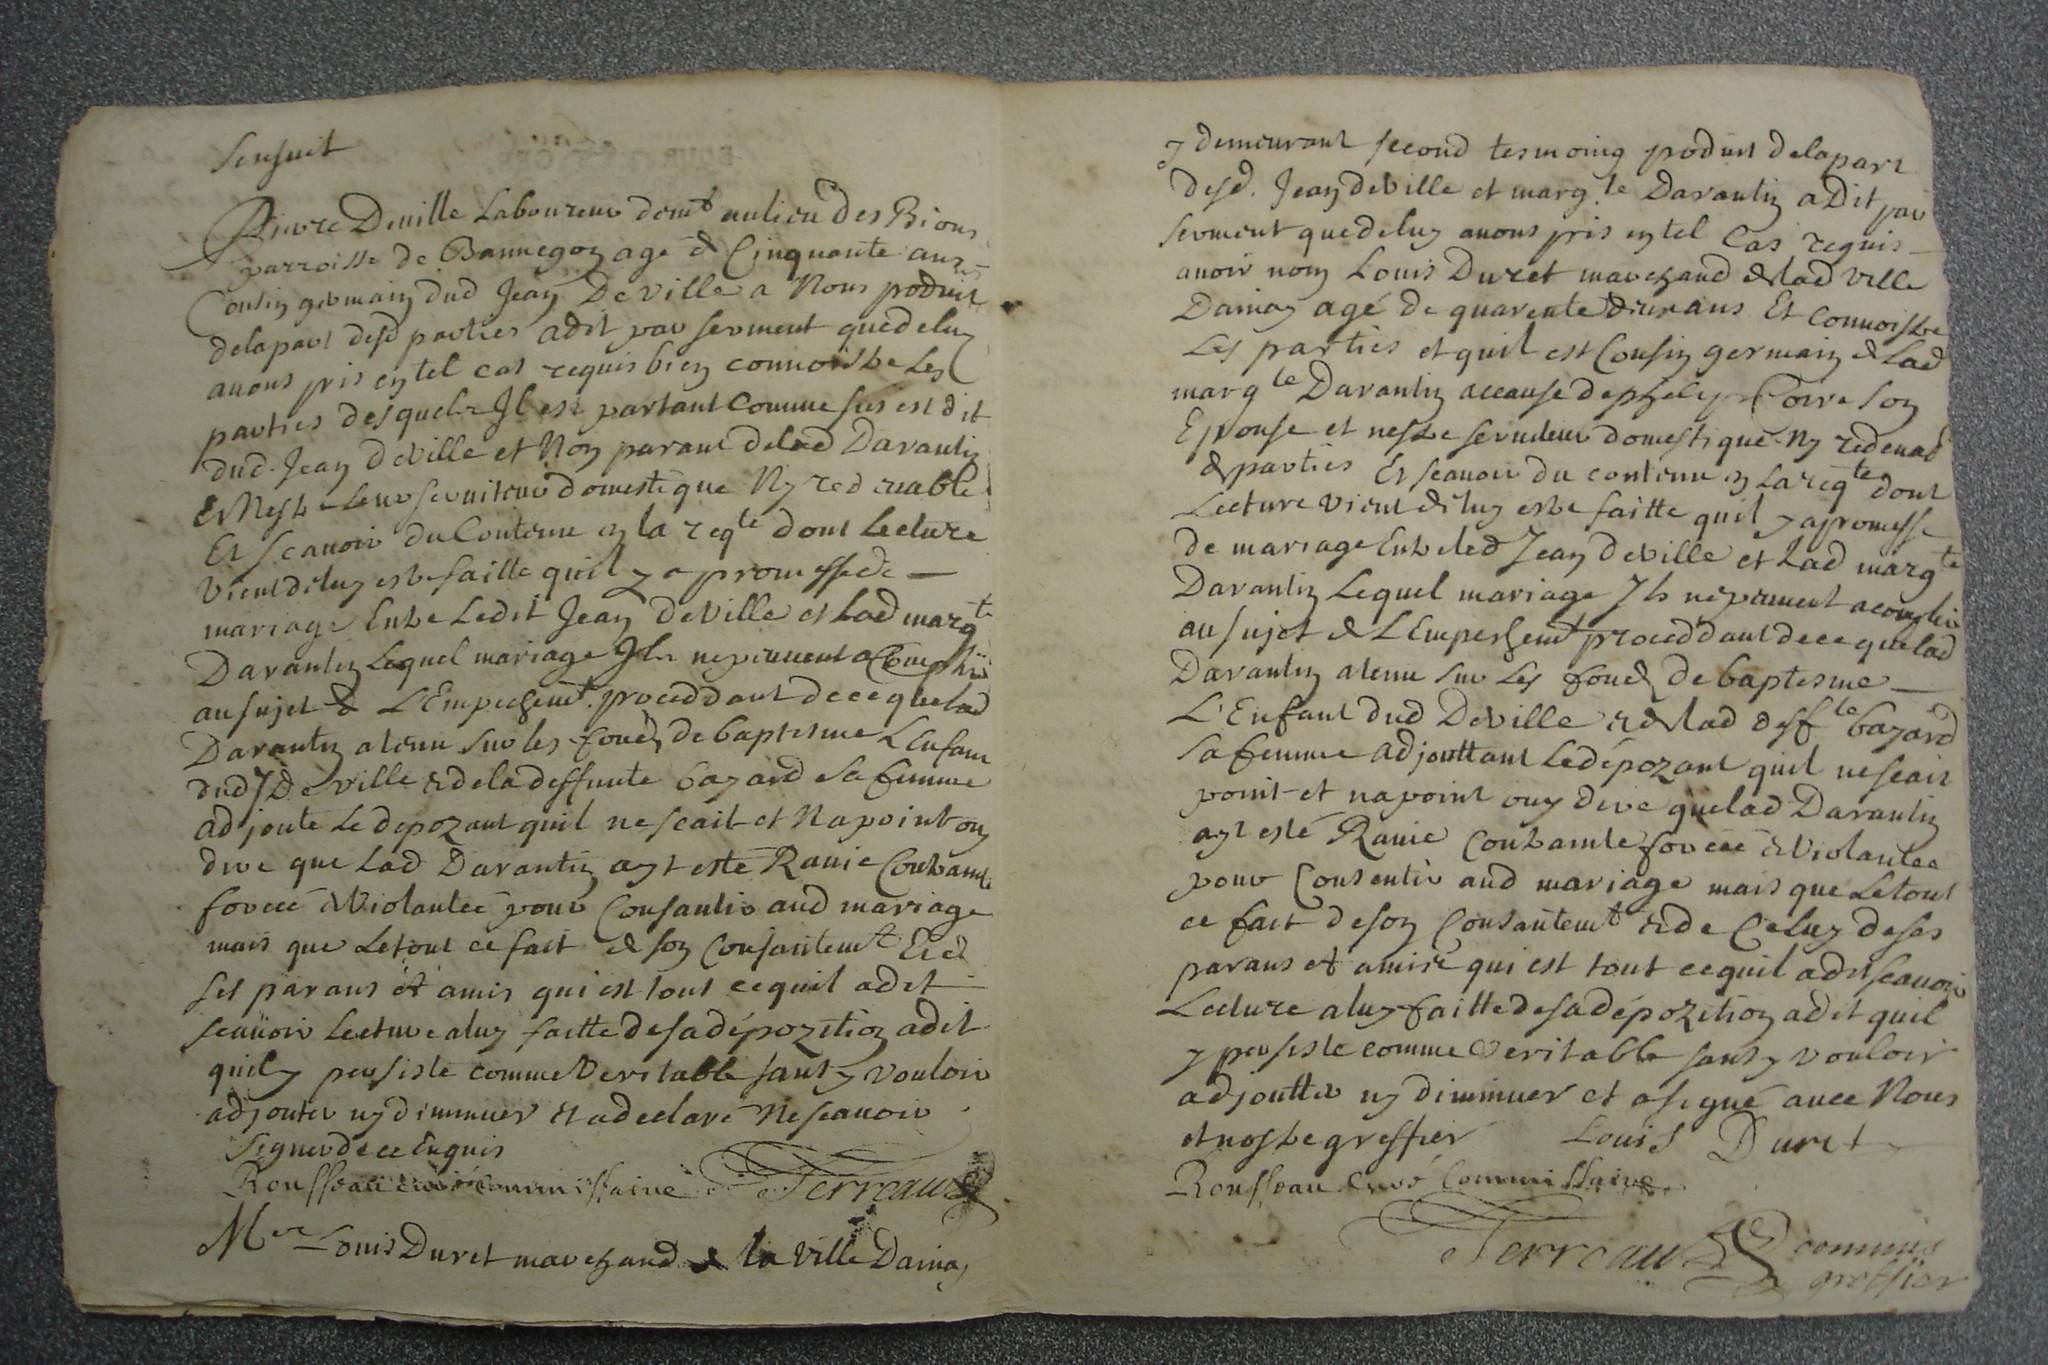 Sensuit
Pierre Deville Laboureur demt au lieu des Bions
parroisse de Bannegon agé de Cinquante ans
Cousin germain dud Jean De Ville a Nous produit
dela part desd parties a dit par serment que de luy
auons pris en tel cas requis bien connoistre Les
parties desquels Il est partant comme sus est dit
dud. Jean deville et Non parant de lad Darantin
Et Nestre leur seruiteur domestique Ny redeuable
Et Scauoir du Contenu en la reqte dont Lecture
vient de luy estre faitte quil y a promesse de
mariage Entre Ledit Jean deville et Lad margte
Darantin Lequel mariage Ils ne peuuent acomplir
au sujet de L'Empechemt. proceddant de ce que lad
Darantin a tenu sur les fonds de baptesme L'Enfant
dud J De ville & de la deffunte bayard sa femme
adjoute Le depozant quil ne scait et Na point ouy
dire que Lad Darantin ayt esté Rauie Contrainte
forceé & Violanteé pour Consantir aud mariage
mais que Le tout ce fait de son Consantemt Et de
ses parans et amis qui est tout ce quil a dit
scauoir Lecture a luy faitte de sa dépozition a dit
quil y persiste comme Veritable sans y vouloir
adjouter ny diminuer et a declaré Ne scauoir
signer de ce Enquis
Rousseau curé commissaire Terreaux
Mer Louis Duret marchand de la ville Dainay
y demeurant second tesmoing produit de la part
desd. Jean de Ville et margte Darantin a Dit par
serment que de luy auons pris en tel Cas requis
auoir nom Louis Duret marchand de lad ville
Dainay agé de quarente deux ans Et connoistre
Les parties et quil est Cousin germain de Lad
margte Darantin a cause de Coire son
Epouse et nestre seruiteur domestique Ny redeuab
de parties Et scauoir du contenu en La reqte dont
Lecture vient de luy estre faitte quil y a promesse
de mariage Entre led Jean deville et Lad margte
Darantin Lequel mariage Ils ne peuuent acomplir
au sujet de L'Empeschemt proceddant de ce que lad
Darantin a tenu sur Les fonds de baptesme
L'Enfant dud Deville & de lad deffte bayard
sa femme adjouttant Le dépozant quil ne scait
point et na point ouy dire que lad Darantin
ayt esté Rauie Contrainte forceé & Violantee
pour Consentir aud mariage mais que Le tout
ce fait de son Consantemt & de Celuy de ses
parans et amis qui est tout ce quil a dit scauoir
Lecture a luy faitte de sa dépozition a dit quil
y persiste comme Veritable sans y vouloir
adjoutter ny diminuer et a signé auec Nous
et nostre greffier Louis Duret
Rousseau Curé Commissaire
Terreaux commis
greffier